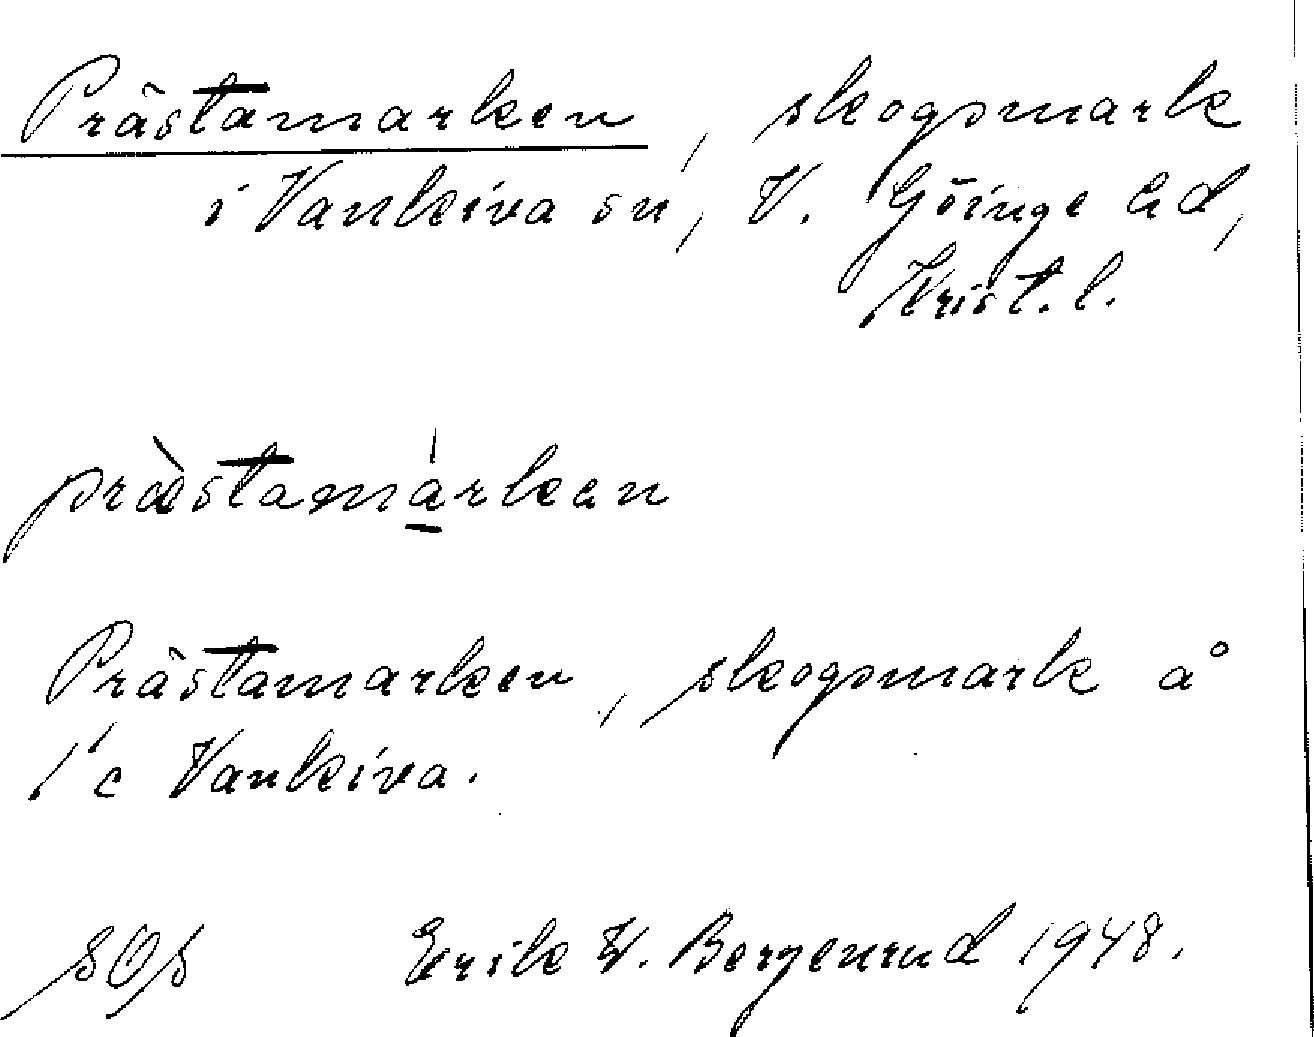 Prästamarken, skogsmark
i Vankiva sn, V. Göinge hd,
Krist. l.
præ̀stamárkan
Prästamarken, skogsmark å
1'c Vankiva.
SOS Erik W. Bergenrud 1948.